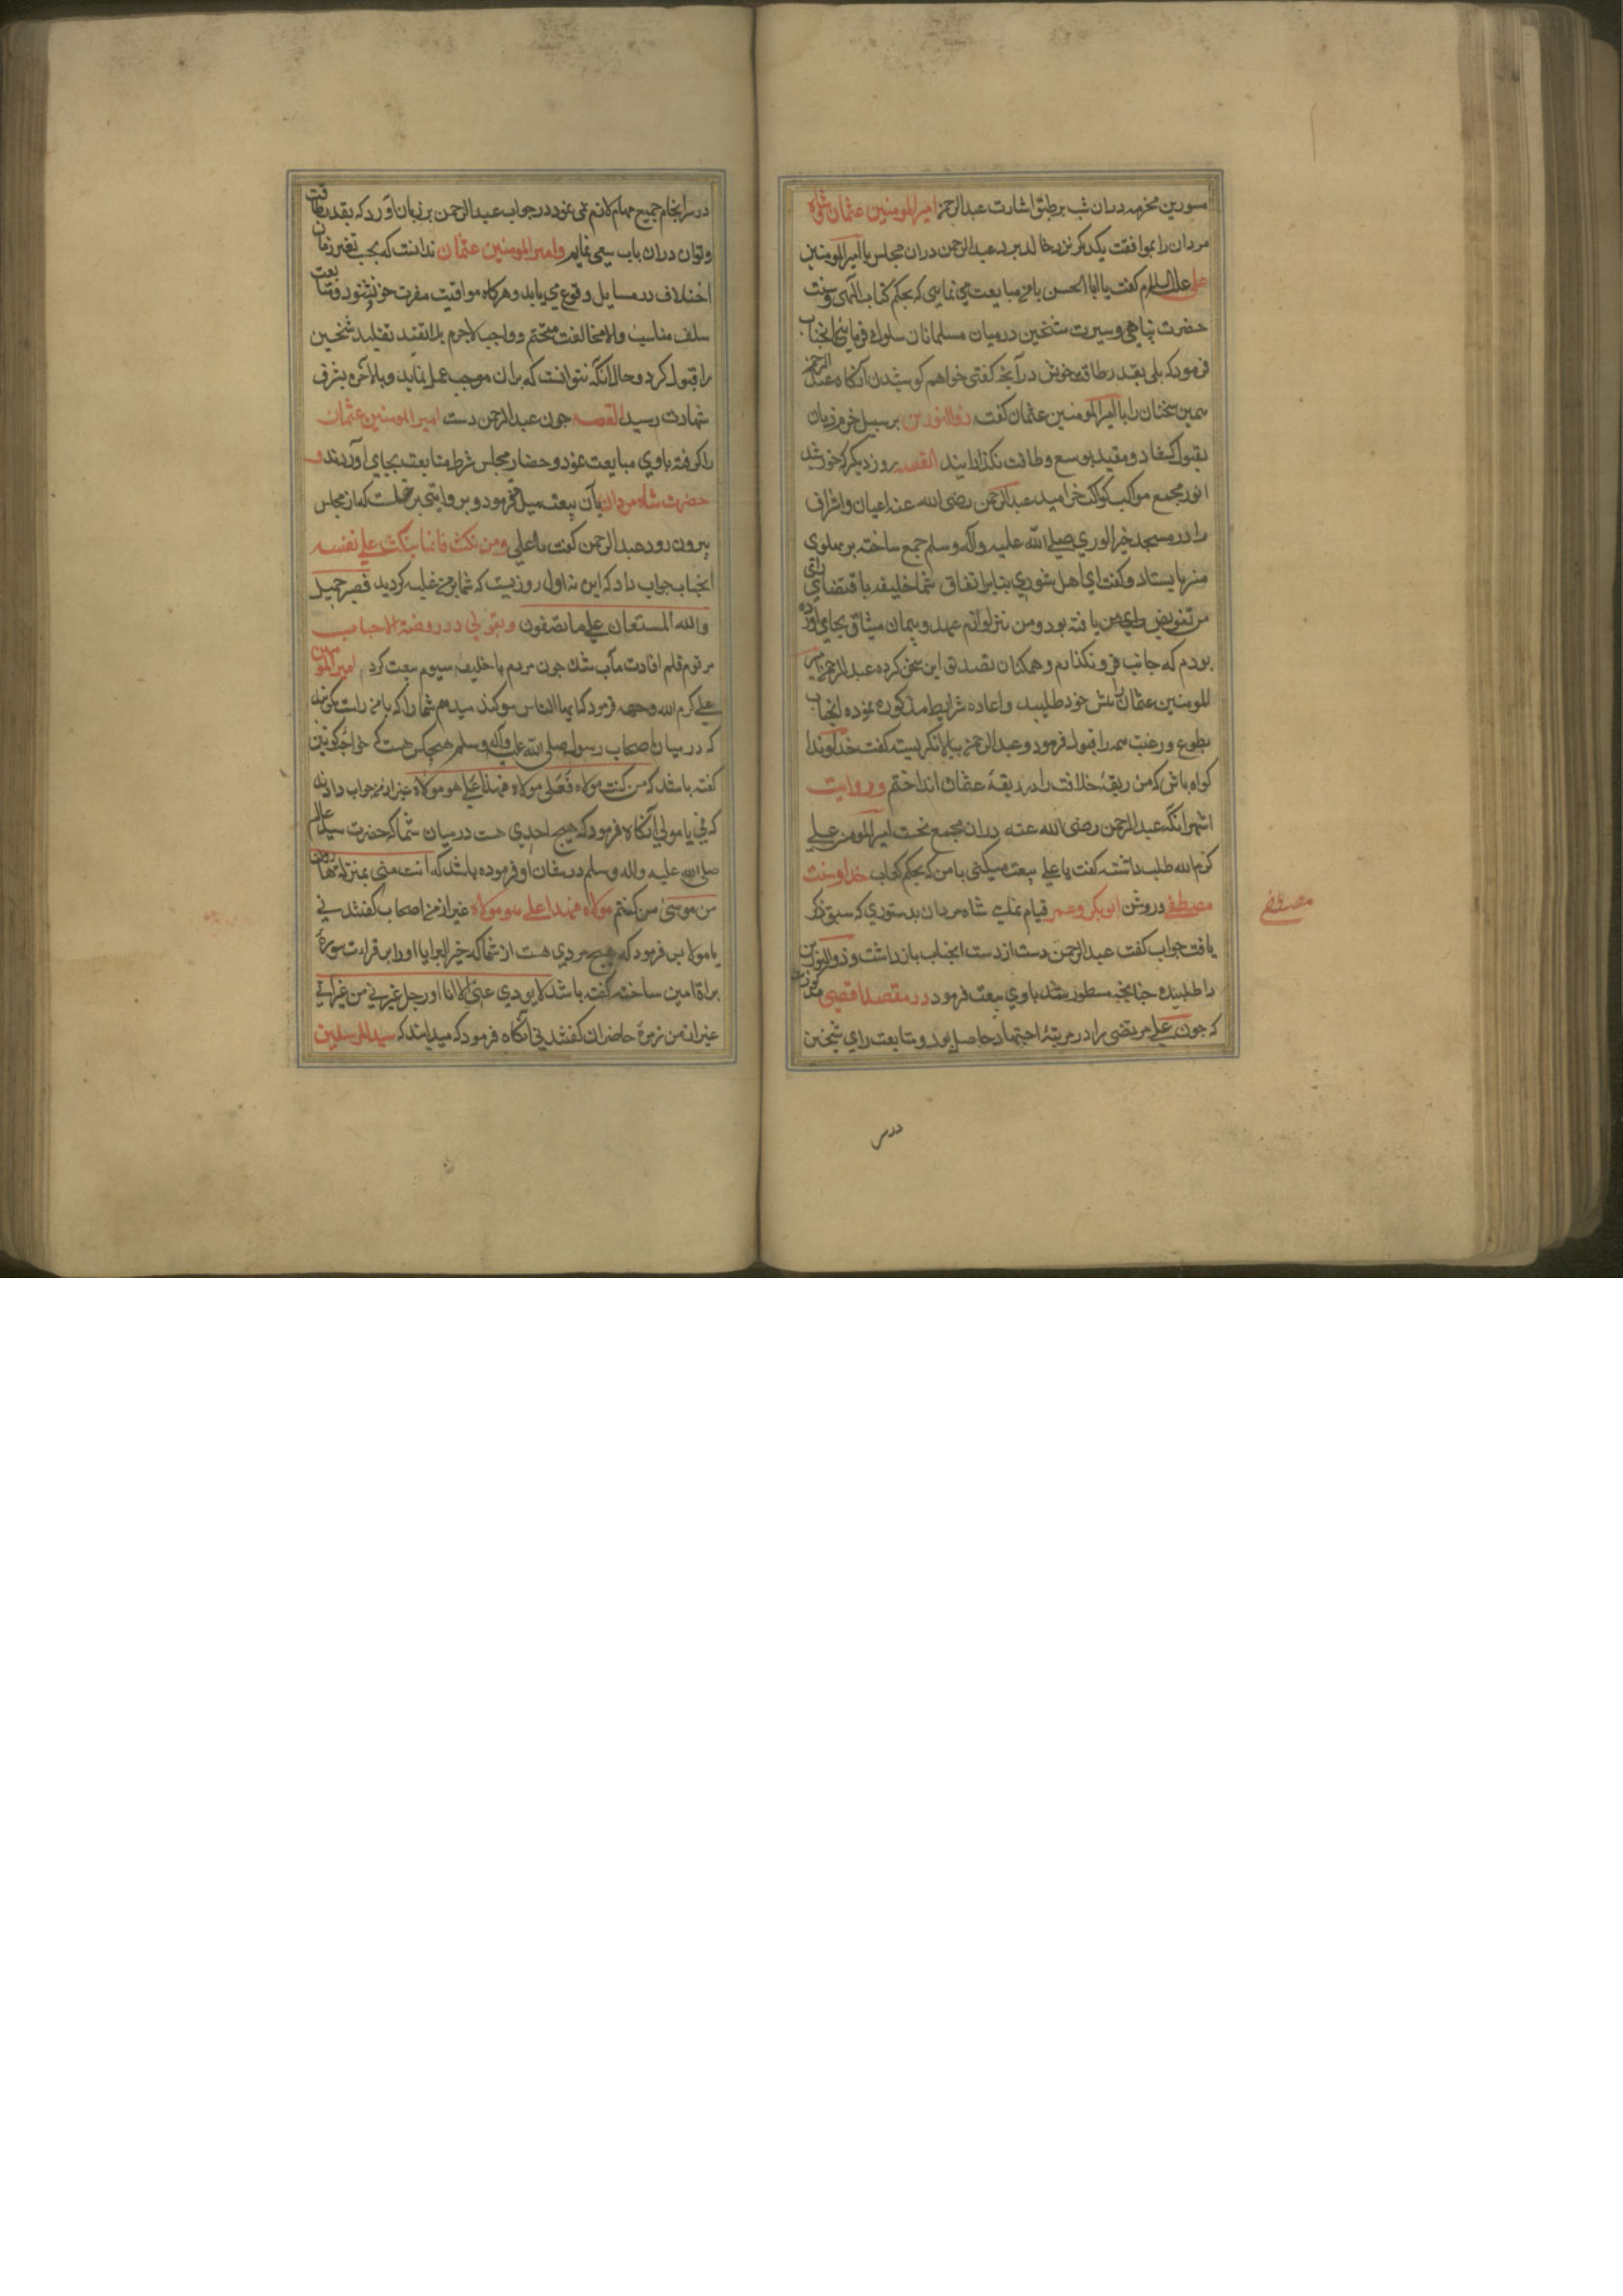 مسور بن مخرمه دران شب برطبق اشارت عبدالرحمن امیرالمومنین عثمان و شاه
مردان را بموافقت یکدیکر نزد خال برد عبدالرحمن دران مجلس با امیرالمومنین
علی علیه السلام کفت یا ابا الحسن با من مبایعت می نمایی که بحکم کتاب الهی و سنت
حضرت پناهی و سیرت شیخین درمیان مسلمانان سلوک فرمایی انجناب
فرمود که بلی بقدر طاقت خویش در آنچه کفتی خواهم کوشید آنکاه عبدالرحمن
همین سخنان را با امیرالمومنین عثمان کفت ذوالنورین بر سبیل جزم زبان
بقبول کشاد و مقید بوسع و طاقت نکردانید القصه روز دیکر که خورشید
انور بمجمع مواکب کواکب خرامید عبدالرحمن رضی الله عنه اعیان و اشراف
را در مسجد خیر الوری صلی الله علیه وآله وسلم جمع ساخته بر پهلوی
منبر بایستاد و کفت ای اهل شوری بنابر اتفاق شما خلیفه باقتضای رای
من تفویض یافته بود و من نیز لوازم عهد و پیمان میثاق بجای آورده
بودم که جانب فرو نکذارم و همکنان تصدیق این سخن کرده عبدالرحمن امیر
المومنین عثمان را پیش خود طلبید و اعاده شرایط مذکوره نموده انجناب
بطوع و رغبت همه را قبول فرمود و عبدالرحمن ببالا نکریست کفت خداوندا
کواه باش که من ربقه خلافت را در ربقهٔ عثمان انداختم و روایت
اشهر انکه عبدالرحمن رضی الله عنه دران مجمع نخست امیرالمومنین علی
کرم الله طلب داشته کفت یا علی بیعت میکنی با من که بحکم کتاب خدا و سنت
مصطفی و روش ابوبکر و عمر قیام نمایی شاه مردان بدستوری که سبق ذکر
یافت جواب کفت عبدالرحمن دست از دست انجناب بازداشت و ذوالنورین
را طلبیده چنانچه مسطور شد باوی بیعت فرمود در مقصد اقصی مذکورست
که چون علی مرتضی را در مرتبهٔ اجتهاد حاصل بود و متابعت رای شیخین
مصطفی
در سر
در سرانجام جمیع مهام لازم نمی نمود در جواب عبدالرحمن بر زبان آورد که بقدر طاقت
و توان دران باب سعی نمایم و امیرالمومنین عثمان ندانست که بحسب تغیر زمان
اختلاف در مسایل وقوع می یابد و هرکاه موافقت متابعت
سلف مناسب والا مخالفت متحتم و واجب لاجرم تقلید شیخین
را قبول کرد و حال آنکه نتوانست که بران موجب عمل نماید و بالاخره بشرف
شهادت رسید القصه چون عبدالرحمن دست امیرالمومنین عثمان
را کرفته باوی مبایعت نمود و حضار مجلس شرط متابعت بجای آوردند و
حضرت شاه مردان بآن بیعت میل نفرمود و بروایتی برخاست که از مجلس
بیرون رود عبدالرحمن کفت یا علی ومن نکث فانما ینکث علی نفسه
انجناب جواب داد که این نه اول روزیست که شما بر من غلبه کردید فصبر جمیل
والله المستعان علی ما تصفون و بقولی در روضة الاحباب
مرقوم قلم افادت مآب شده چون مردم با خلیفه سیوم بیعت کرد امیرالمومنین
علی کرم الله وجهه فرمود که ایها الناس سوکند میدهم شما را که با من راست کویید
که درمیان اصحاب رسول صلی الله علیه وآله وسلم هیچکس هست که خواجه کونین
کفته باشد که من کنت مولاه فعلی مولاه فهذا علی هو مولاه غیر از من جواب دادند
که نی یا مولی آنکاه فرمود که هیچ احدی هست درمیان شما که حضرت سید عالم
صلی الله علیه واله وسلم در شان او فرموده باشد که انت منی بمنزله هارون
من موسی من کنتم مولاه فهذا علی هو مولاه غیر از من اصحاب کفتند نی
یا مولا پس فرمود که هیچ مردی هست از شما که خیر البرایا او را بر قراءت سورهٔ
براة امین ساخته کفته باشد لا یودی عنی الا انا او رجل عترتی من غیرانی
غیر از من زمرهٔ حاضران کفتند نی آنکاه فرمود که میدانند که سید المرسلین